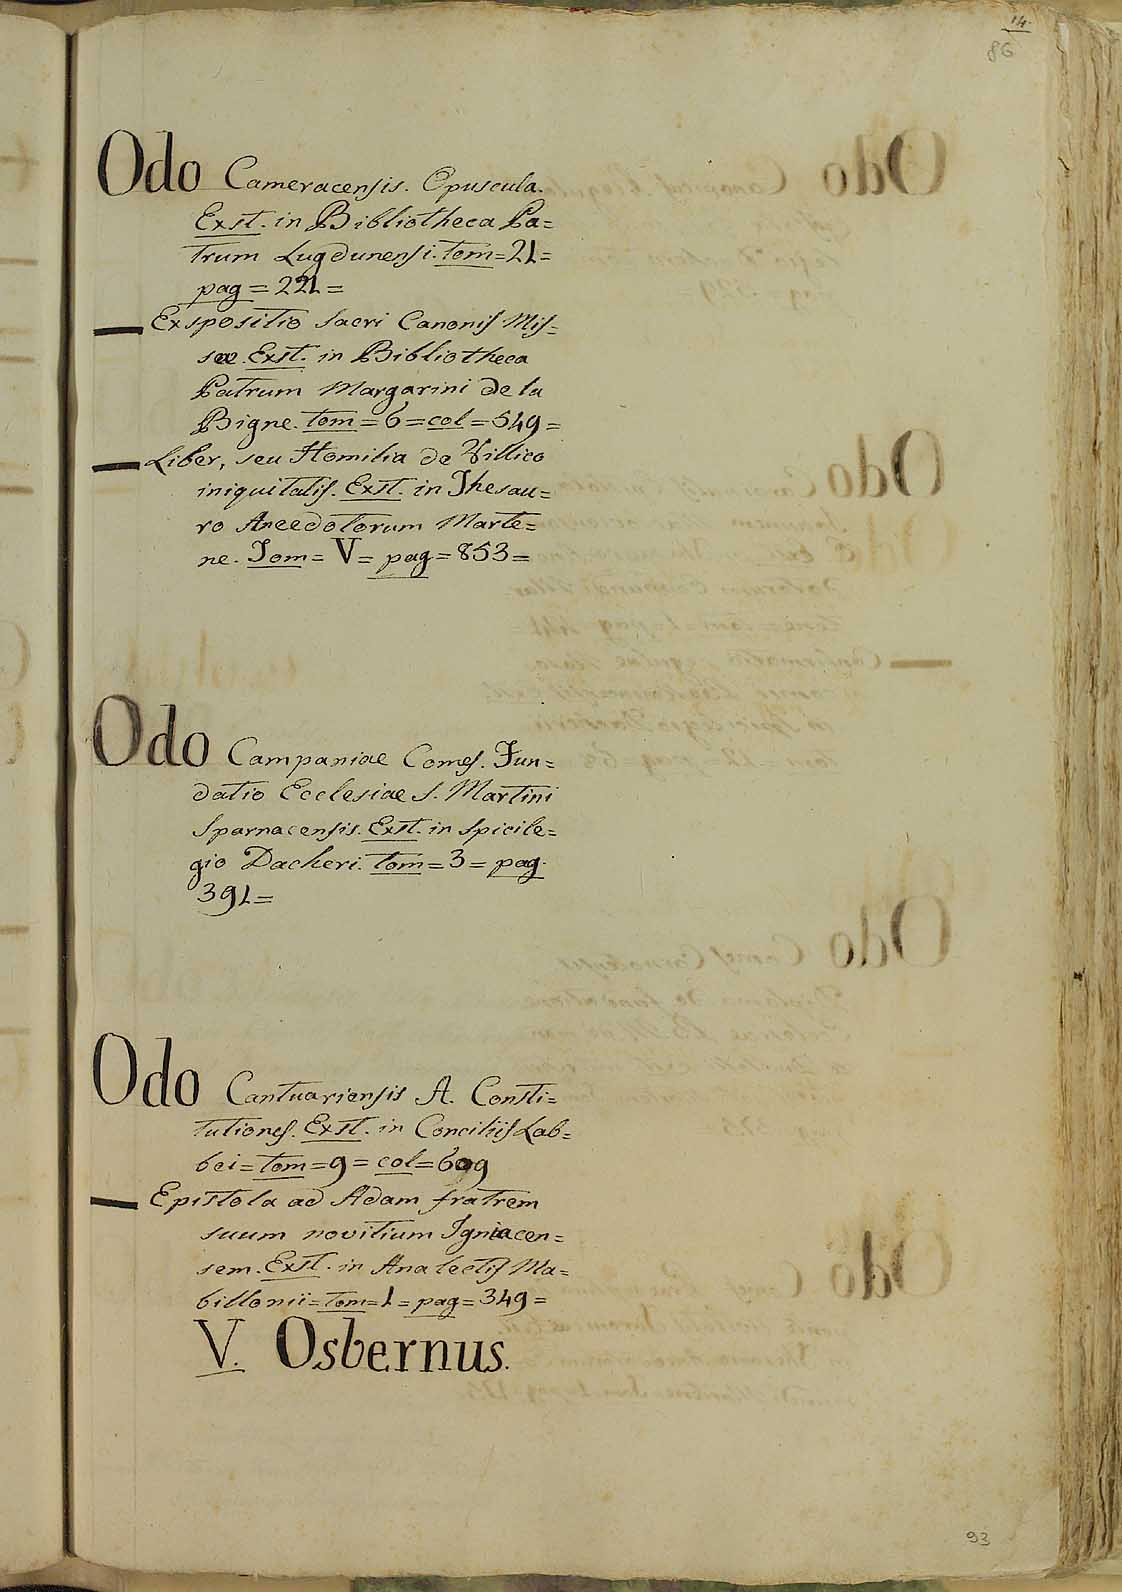 14.
86
Odo Cameracensis. Opuscula.
Exst. in Bibliotheca Pa=
trum Lugdunensi. tom=21=
pag=221=
— Expositio sacri Canonis Mis=
sae. Exst. in Bibliotheca
Patrum Margarini de la
Bigne. tom=6=col=549=
— Liber, seu Homilia de Villico
iniquitatis. Exst. in Thesau=
ro Anecdotorum Marte=
ne. Tom=V=pag=853=
Odo Campaniae Comes. Fun=
datio Ecclesiae S. Martini
Sparnacensis. Exst. in Spicile=
gio Dacheri. tom=3=pag.
391=
Odo Cantuariensis A. Consti=
tutiones. Exst. in Conciliis Lab=
bei=tom=9=col=609
— Epistola ad Adam fratrem
suum novitium Igniacen=
sem. Exst. in Analectis Ma=
billonii=tom=1=pag=349=
V. Osbernus.
93